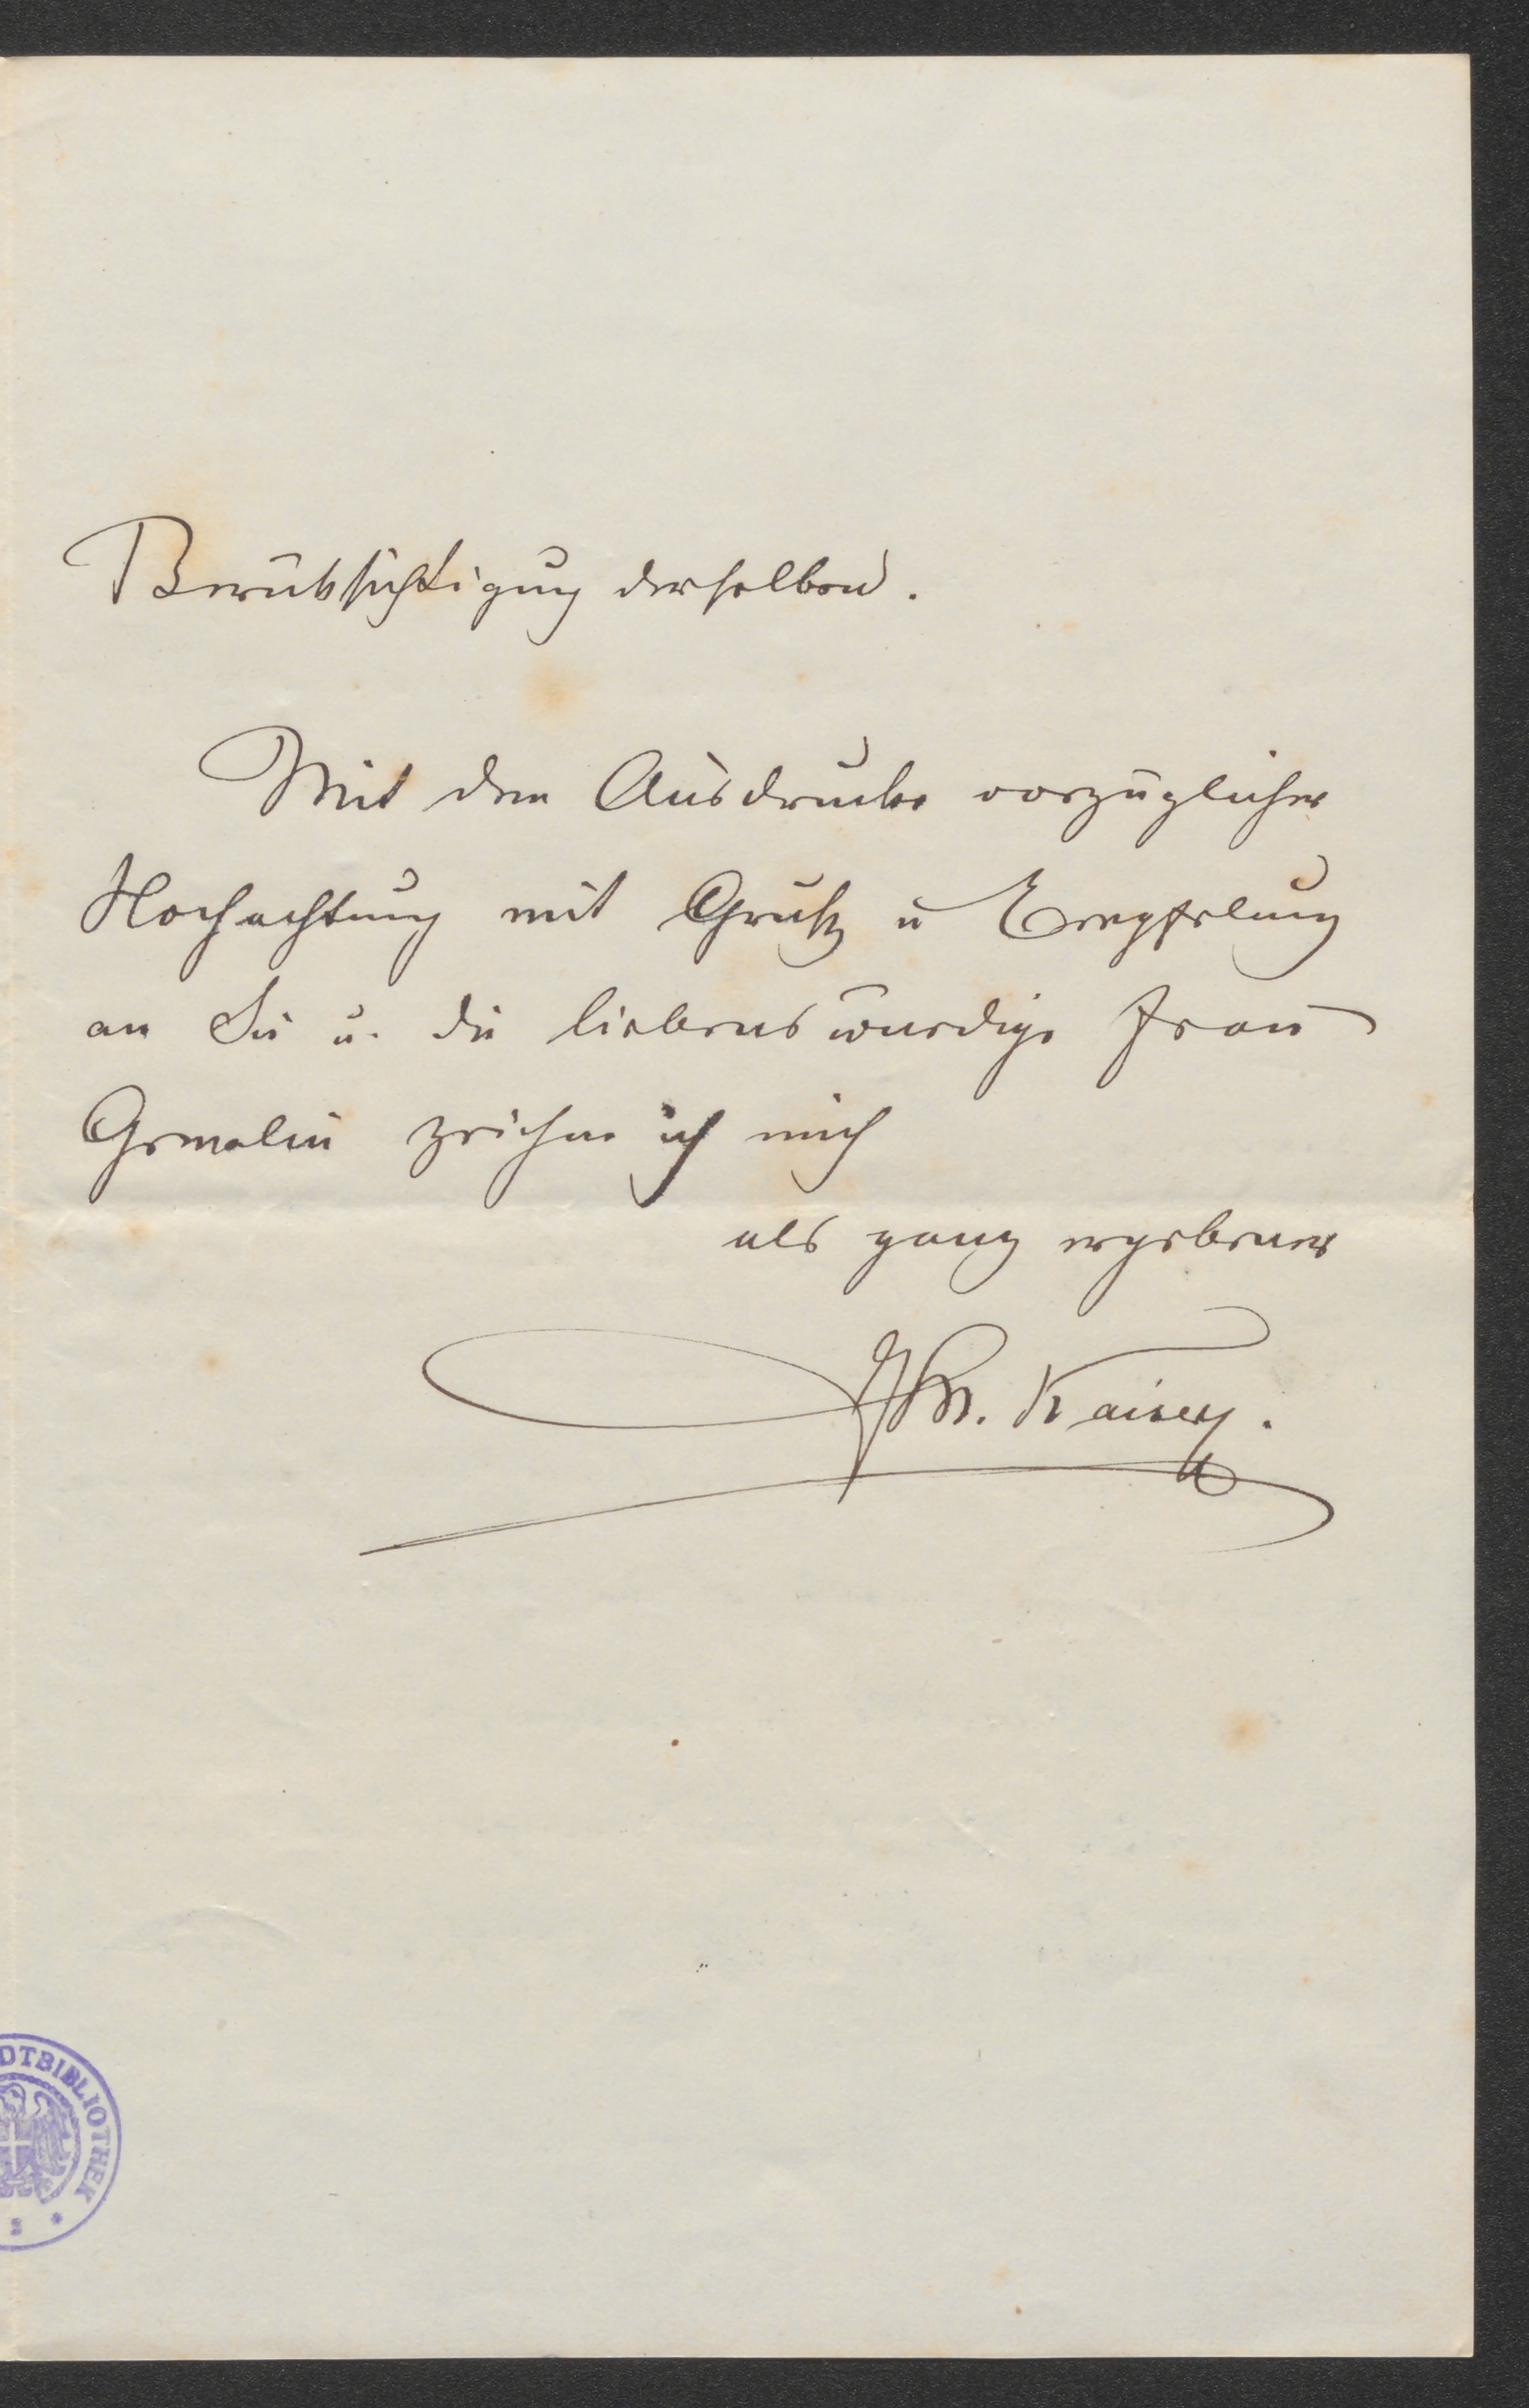 Berüksichtigung derselben.
Mit dem Ausdrucke vorzüglicher
Hochachtung mit Gruß u Empfelung
an Sie u. die liebenswürdige Frau
Gemalin zeichne ich mich
als ganz ergebener
Kaiser.
DTBIBLIOTHEK